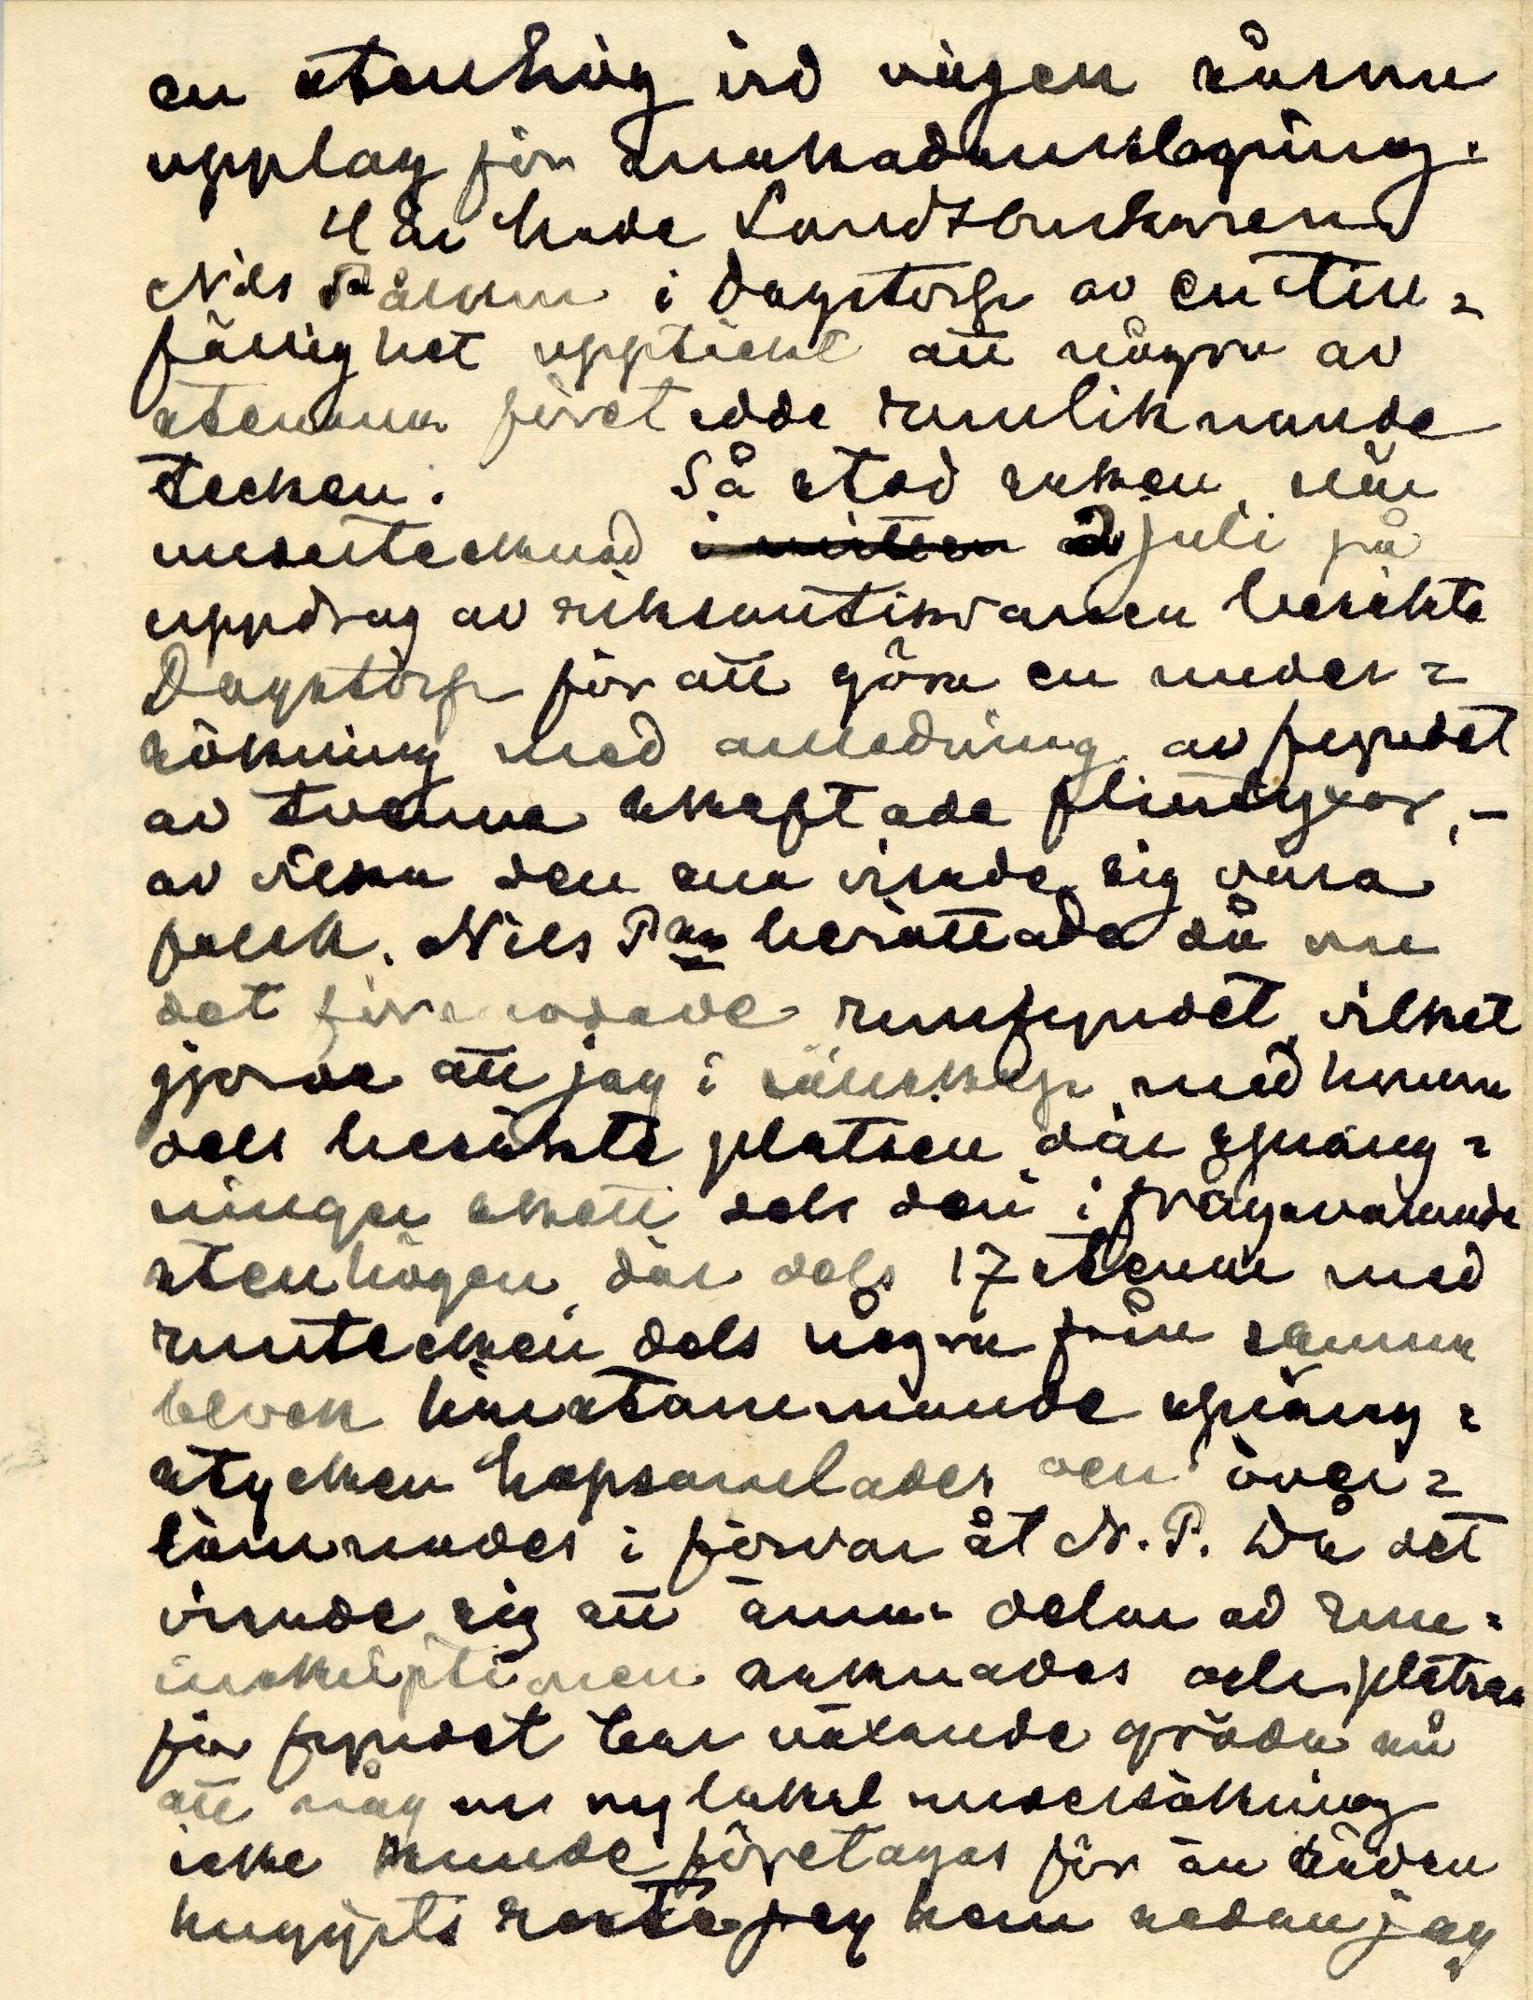 en stenhög vid vägen såsom
upplag för makadamslagning.
Här hade Lantbrukaren
Nils Pålsson i Dagstorp av en till=
fällighet upptäckt att några av
stenarna företedde runliknande
tecken. Så stod saken, när
undertecknad 2 juli på
uppdrag av riksantikvarien besökte
Dagstorp för att göra en under=
sökning med anledning av fyndet
av tvenne skaftade flintyxor, –
av vilka den ena visade sig vara
falsk. Nils Pn berättade då om
det förmodade runfyndet, vilket
gjorde att jag i sällskap med honom
dels besökte platsen där spräng=
ningen skett dels den i fråga varande
stenhögen, där dels 17 stenar med
runtecken dels några från samma
block härstammande spräng=
stycken hopsamlades och över=
lämnades i förvar åt N. P. Då det
visade sig att ännu delar av run=
inskriptionen saknades och platsen
för fyndet bar växande gröda så
att någon ny lokal undersökning
icke kunde företagas för än säden
huggits reste jag hem sedan jag